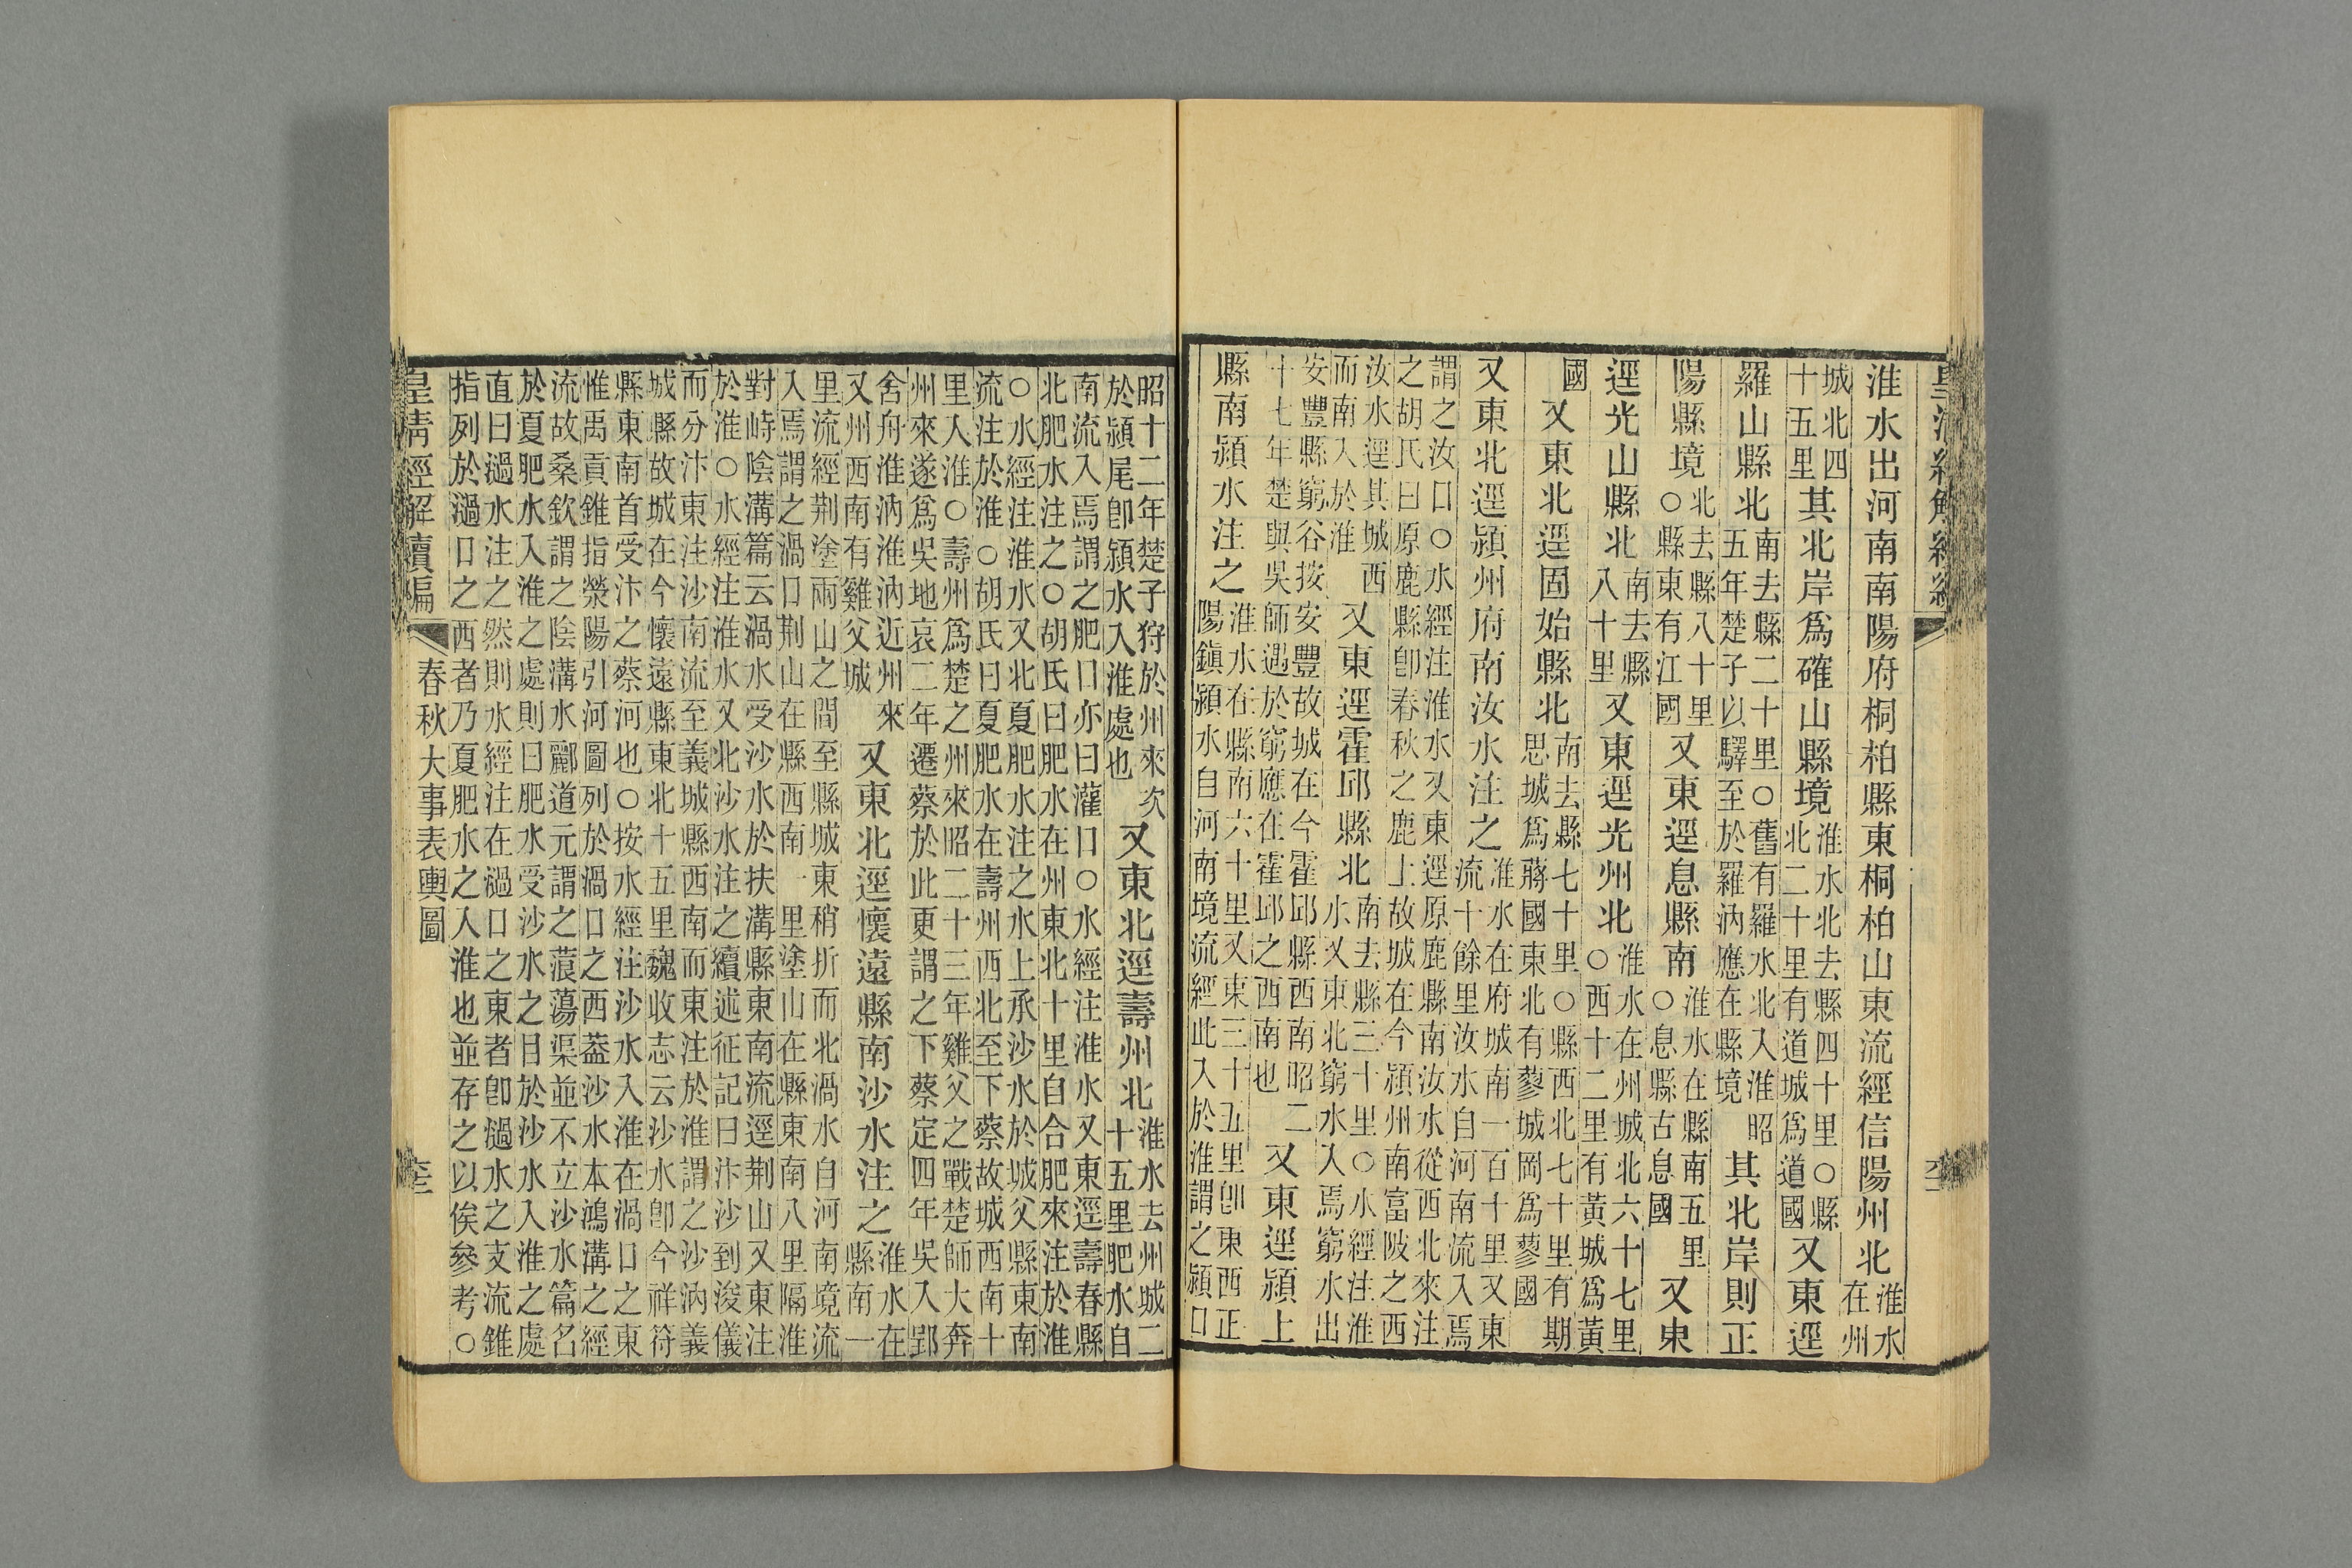 淮水出河南南陽府桐柏縣東桐柏山東流經信陽州北淮水在州
城北四十五里其北岸爲確山縣境淮水北去縣四十里○縣北二十里有道城爲道國又東逕
羅山縣北南去縣二十里○舊有羅水北入淮昭五年楚子以驛至於羅汭應在縣境其北岸則正
陽縣境北去縣八十里○縣東有江國又東逕息縣南淮水在縣南五里○息縣古息國又東
逕光山縣北南去縣八十里又東逕光州北淮水在州城北六十七里○西十二里有黃城爲黃
國又東北逕固始縣北南去縣七十里○縣西北七十里有期思城爲蔣國東北有蓼城岡爲蓼國
又東北逕潁州府南汝水注之淮水在府城南一百十里又東流十餘里汝水自河南流入焉
謂之汝口○水經注淮水又東逕原鹿縣南汝水從西北來注
之胡氏曰原鹿縣卽春秋之鹿上故城在今潁州南富陂之西
汝水逕其城西而南入於淮又東逕霍邱縣北南去縣三十里○水經注淮水又東北窮水入焉窮水出
安豐縣窮谷按安豐故城在今霍邱縣西南昭二十七年楚與吳師遇於窮應在霍邱之西南也又東逕潁上
縣南潁水注之淮水在縣南六十里又東三十五里卽東西正陽鎮潁水自河南境流經此入於淮謂之潁口
昭十二年楚子狩於州來次於潁尾卽潁水入淮處也又東北逕壽州北淮水去州城二十五里肥水自
南流入焉謂之肥口亦曰灌口○水經注淮水又東逕壽春縣
北肥水注之○胡氏曰肥水在州東北十里自合肥來注於淮
○水經注淮水又北夏肥水注之水上承沙水於城父縣東南
流注於淮○胡氏曰夏肥水在壽州西北至下蔡故城西南十
里入淮○壽州爲楚之州來昭二十三年雞父之戰楚師大奔
州來遂爲吳地哀二年遷蔡於此更謂之下蔡定四年吳入郢
舍舟淮汭淮汭近州來又州西南有雞父城又東北逕懷遠縣南沙水注之淮水在縣南一
里流經荆塗兩山之間至縣城東稍折而北渦水自河南境流
入焉謂之渦口荆山在縣西南一里塗山在縣東南八里隔淮
對峙陰溝篇云渦水受沙水於扶溝縣東南流逕荆山又東注
於淮○水經注淮水又北沙水注之續述征記曰汴沙到浚儀
而分汴東注沙南流至義城縣西南而東注於淮謂之沙汭義
城縣故城在今懷遠縣東北十五里魏收志云沙水卽今祥符
縣東南首受汴之蔡河也○按水經注沙水入淮在渦口之東
惟禹貢錐指滎陽引河圖列於渦口之西葢沙水本鴻溝之經
流故桑欽謂之陰溝水酈道元謂之蒗蕩渠並不立沙水篇名
於夏肥水入淮之處則曰肥水受沙水之目於沙水入淮之處
直曰濄水注之然則水經注在濄口之東者卽濄水之支流錐
指列於濄口之西者乃夏肥水之入淮也並存之以俟參考○
皇清經解續編 春秋大事表輿圖